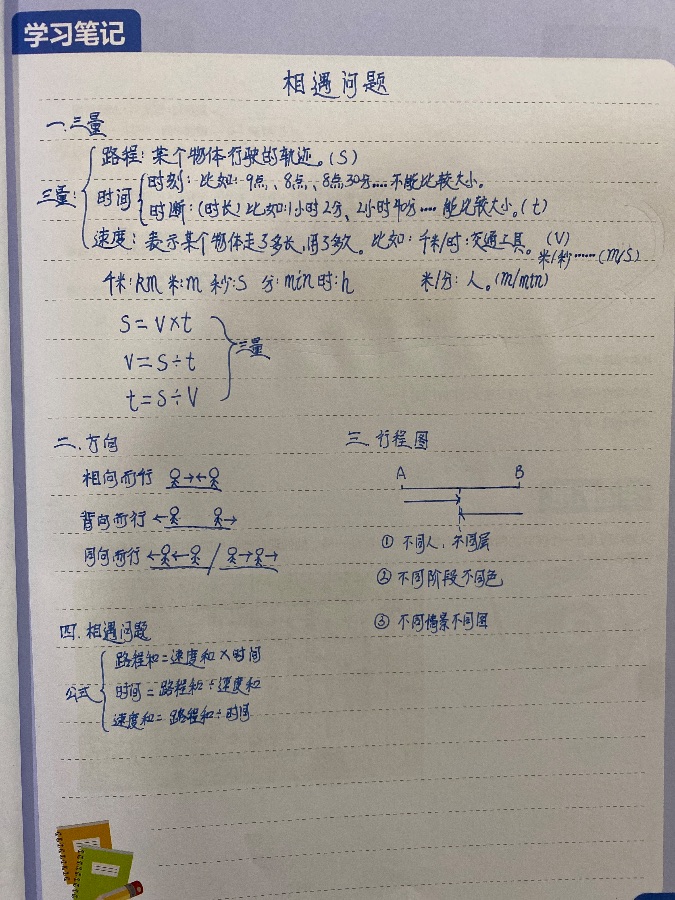 学习笔记
相遇问题
一.三量
路程:某个物体行驶的轨迹。(S)
三量:
时间
时刻:比如:9点、8点、8点30分....不能比较大小。
时断:(时长)比如:1小时2分、2小时40分....能比较大小。(t)
速度:表示某个物体走了多长,用了多久。比如:千米/时:交通工具。(V)
米/秒......(m/s)
千米:km 米:m 秒:s 分:min 时:h 米/分:人。(m/min)
S=V×t
V=S÷t
三量
t=S÷V
二.方向
相向而行 →←
背向而行 ← →
同向而行 ←← / →→
三.行程图
A B
① 不同人,不同层
② 不同阶段不同色
③ 不同情景不同图
四.相遇问题
公式
路程和=速度和×时间
时间=路程和÷速度和
速度和=路程和÷时间